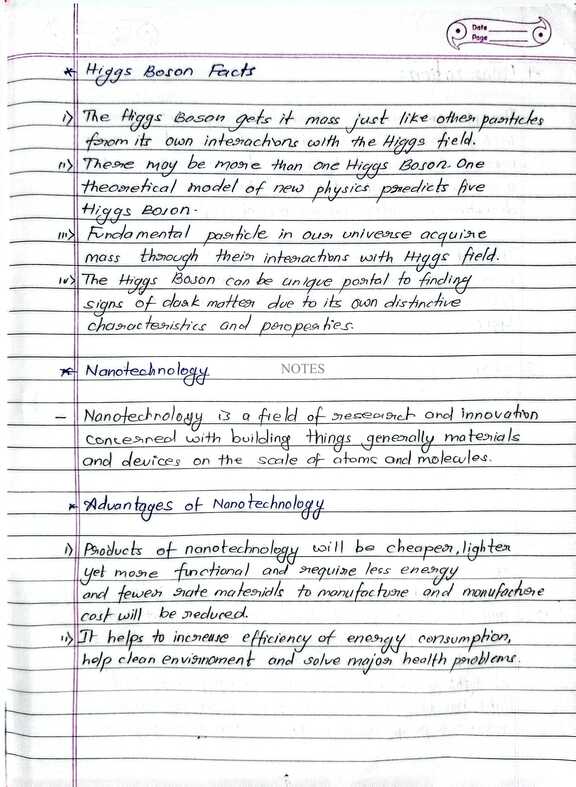 Date
Page
* Higgs Boson Facts
i) The Higgs Boson gets it mass just like other particles
from its own interactions with the Higgs field.
ii) There may be more than one Higgs Boson. One
theoretical model of new physics predicts five
Higgs Boson.
iii) Fundamental particle in our universe acquire
mass through their interactions with Higgs field.
iv) The Higgs Boson can be unique portal to finding
signs of dark matter due to its own distinctive
characteristics and properties.
* Nanotechnology NOTES
- Nanotechnology is a field of research and innovation
concerned with building things generally materials
and devices on the scale of atoms and molecules.
* Advantages of Nanotechnology
i) Products of nanotechnology will be cheaper, lighter
yet more functional and require less energy
and fewer rate materials to manufacture and manufacture
cost will be reduced.
ii) It helps to increase efficiency of energy consumption,
help clean envirnoment and solve major health problems.